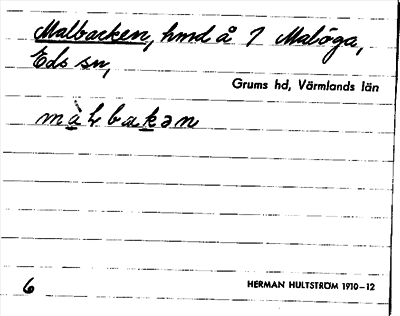 Malbacken, hmd å 1 Malöga,
Eds sn,
Grums hd, Värmlands län
màlbakən
6
HERMAN HULTSTRÖM 1910–12